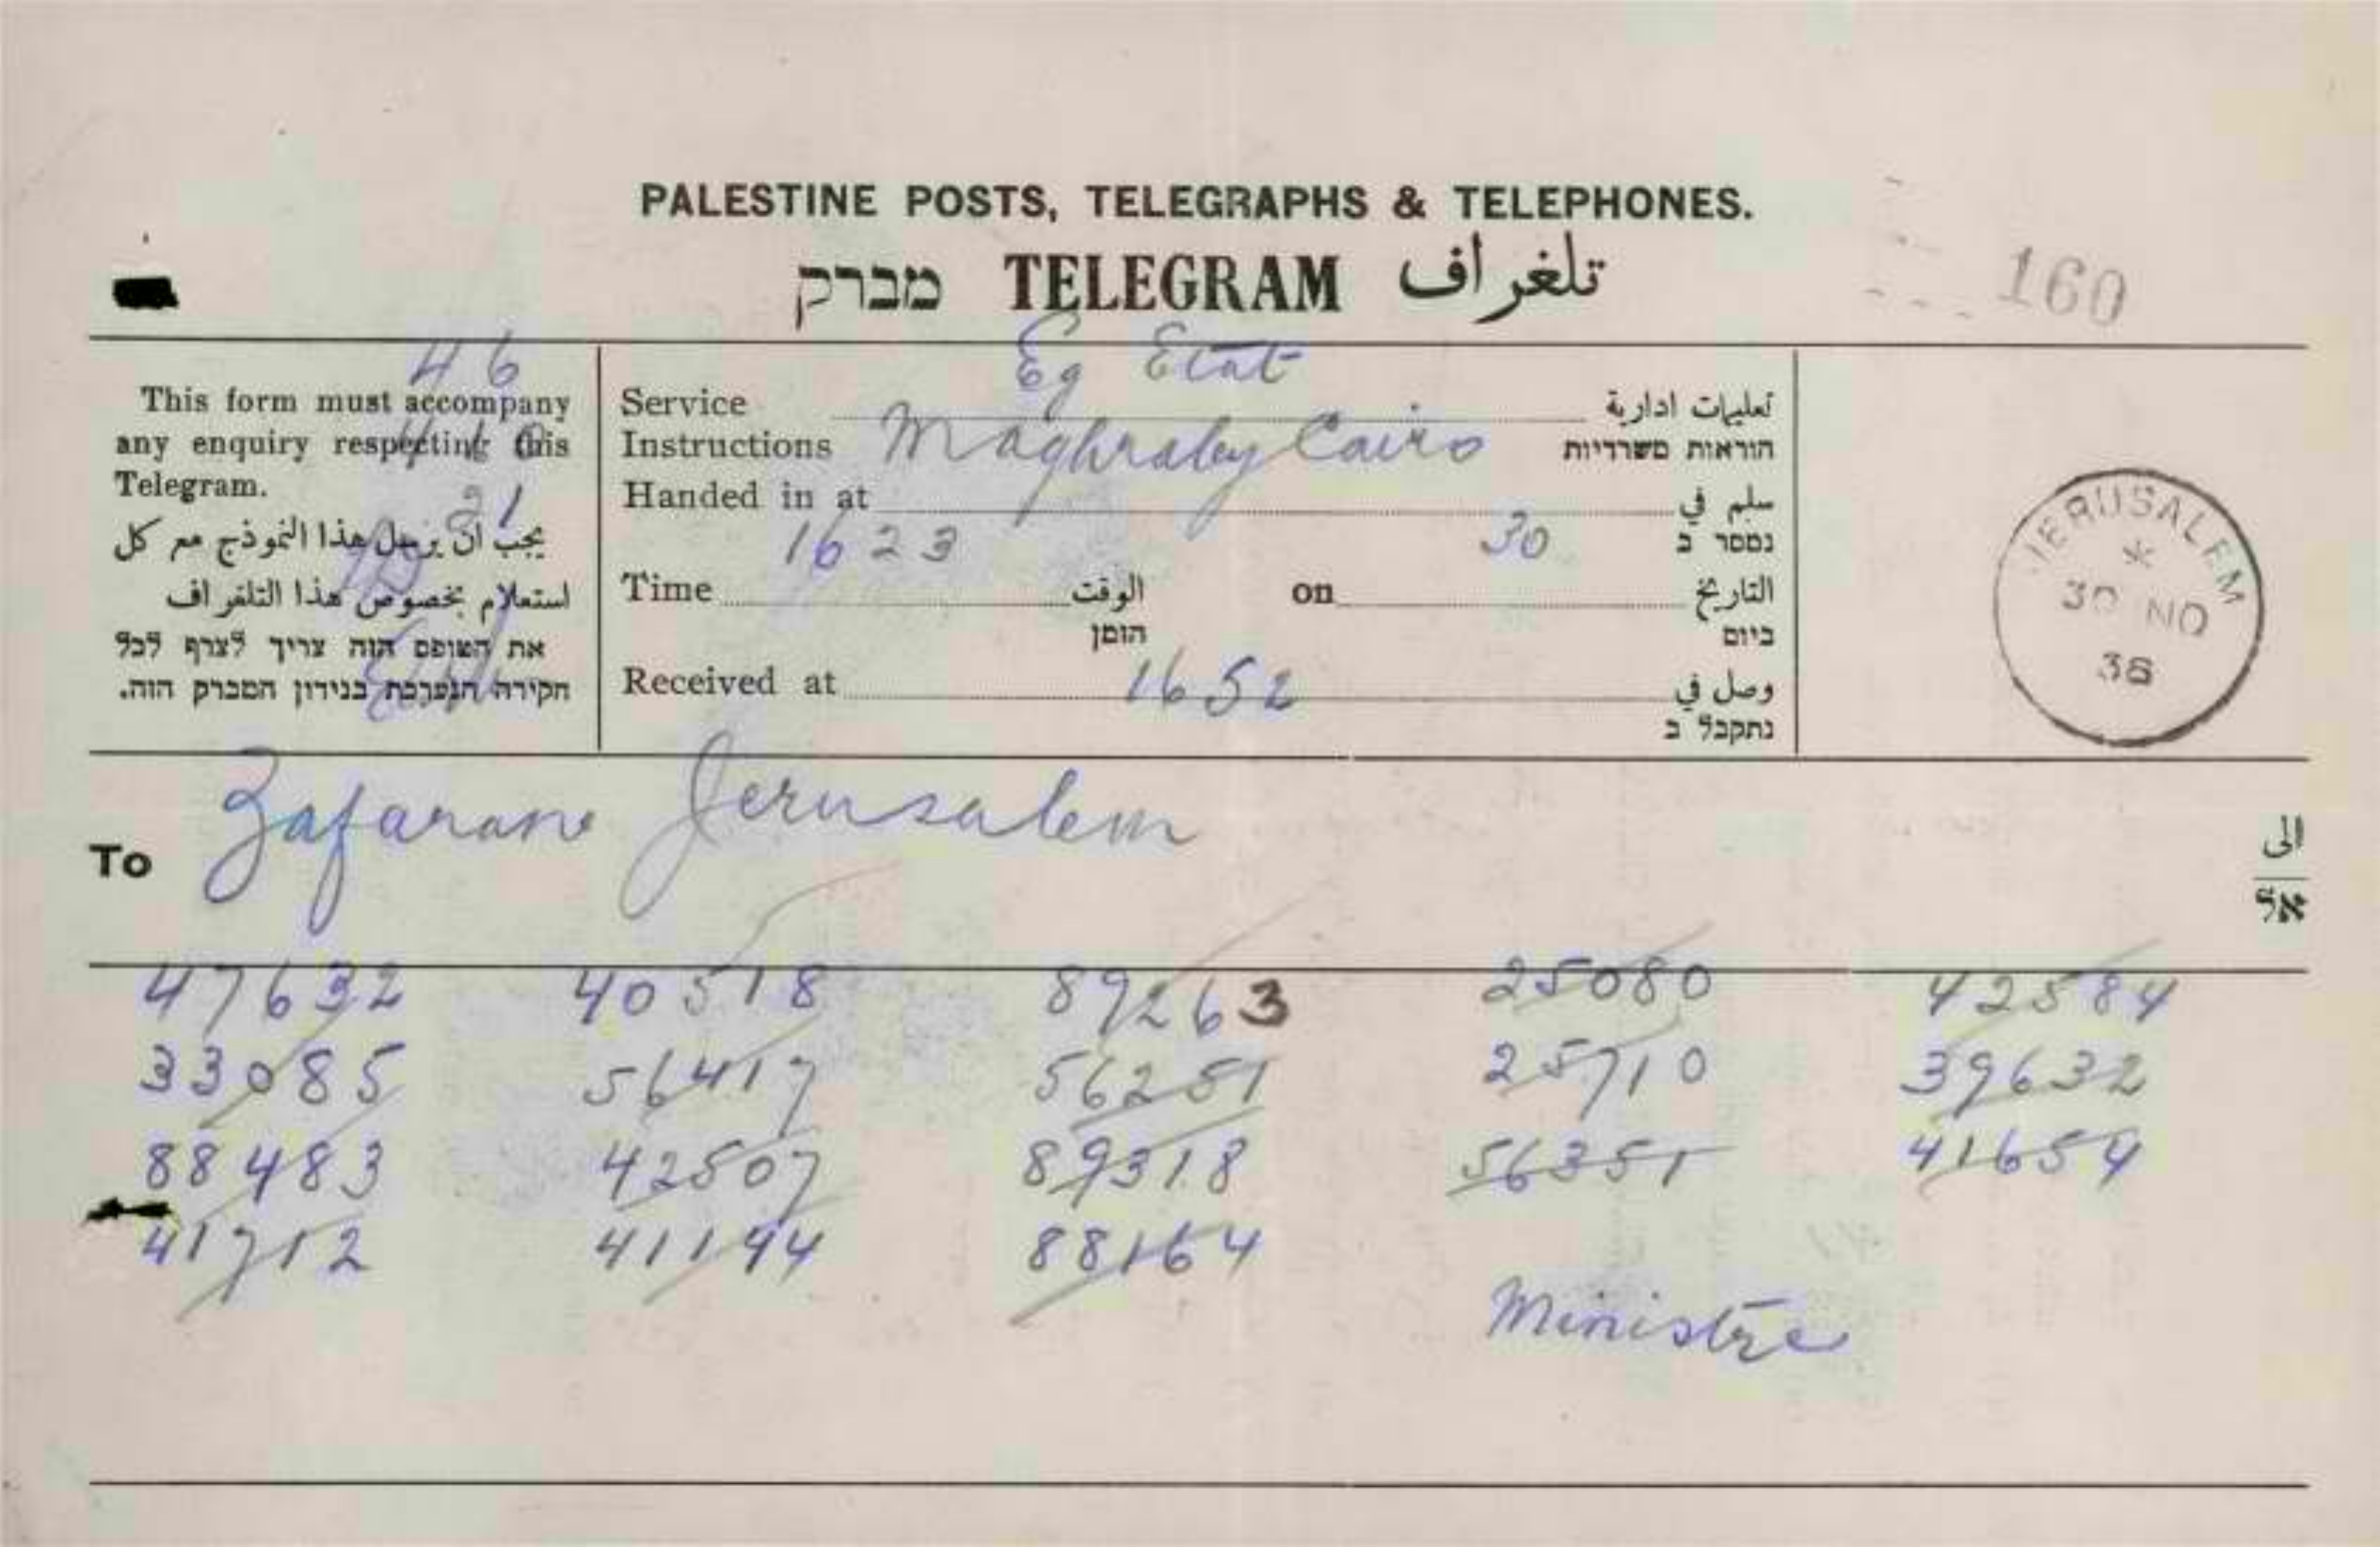 PALESTINE POSTS, TELEGRAPHS & TELEPHONES.
מברק TELEGRAM تلغراف
160
46
This form must accompany
any enquiry respecting this
Telegram.
21
يجب ان يرسل هذا النموذج مع كل
استعلام بخصوص هذا التلغراف
את הטופס הזה צריך לצרף לכל
חקירה הנערכת בנידון המברק הזה.
Eg Etat
Service تعليمات ادارية
Instructions Maghraby Cairo הוראות משרדיות
Handed in at سلم في
1623 30 נמסר ב
Time الوقت on التاريخ
הזמן ביום
Received at 1652 وصل في
נתקבל ב
JERUSALEM
*
30 NO
36
To Zafaran Jerusalem الى
אל
47632 40518 89263 25080 42584
33085 56417 56251 25710 39632
88483 42507 89318 56351 41654
41712 41194 88164
Ministre